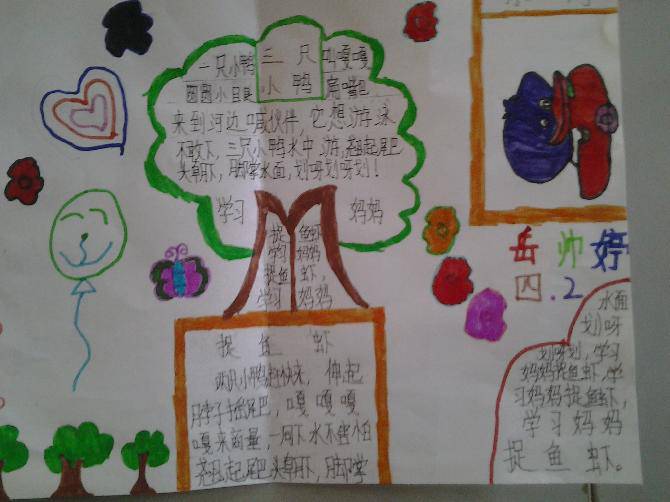 三只
小鸭
一只小鸭 叫嘎嘎
圆圆小眼 扁嘴巴
来到河边喊伙伴，它想游泳
不敢下，三只小鸭水中游，翘起尾巴
头朝下，脚掌水面，划呀划呀划！
学习 妈妈
捉鱼虾
学习妈妈
捉鱼虾，
学习妈妈
捉鱼虾
两只小鸭赶快来，伸起
脖子摇尾巴，嘎嘎嘎
嘎来商量，一同下水不害怕
翘起尾巴头朝下，脚掌
岳帅婷
四.2
水面
划呀
划呀划，学习
妈妈捉鱼虾，学
习妈妈捉鱼虾，
学习妈妈
捉鱼虾。